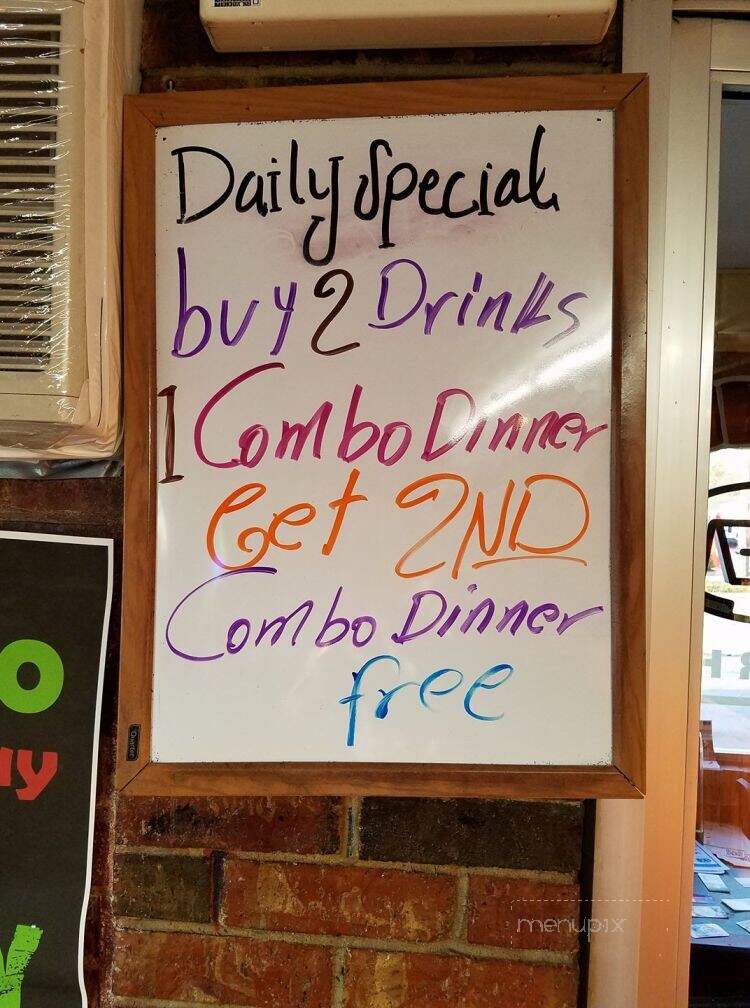 Daily Special
buy 2 Drinks
1 Combo Dinner
Get 2ND
Combo Dinner
free
Quartet
O
y
menupix